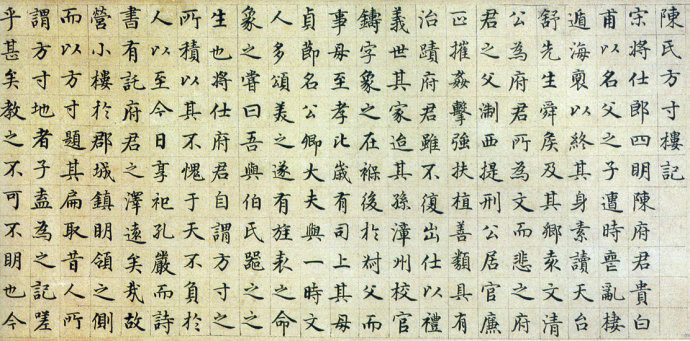 陳氏方寸樓記
宋將仕郎四明陳府君貴白
甫以名父之子遭時喪亂棲
遁海裔以終其身素讀天台
舒先生舜矦及其鄉袁文清
公為府君所為文而悲之府
君之父淛西提刑公居官廉
正摧姦擊強扶植善類具有
治蹟府君雖不復出仕以禮
義世其家迨其孫漳州校官
鑄字象之在褓後於父而
事母至孝比歲有司上其母
貞節名公卿大夫與一時文
人多頌美之遂有旌表之命
象之嘗曰吾與伯氏之之
生也將仕府君自謂方寸之
所積以其不愧于天不負於
人以至今日享祀孔嚴而詩
書有託府君之澤遠矣哉故
營小樓於郡城鎮明領之側
而以方寸題其扁取昔人所
謂方寸地者子盍為之記嗟
乎甚矣教之不可不明也今